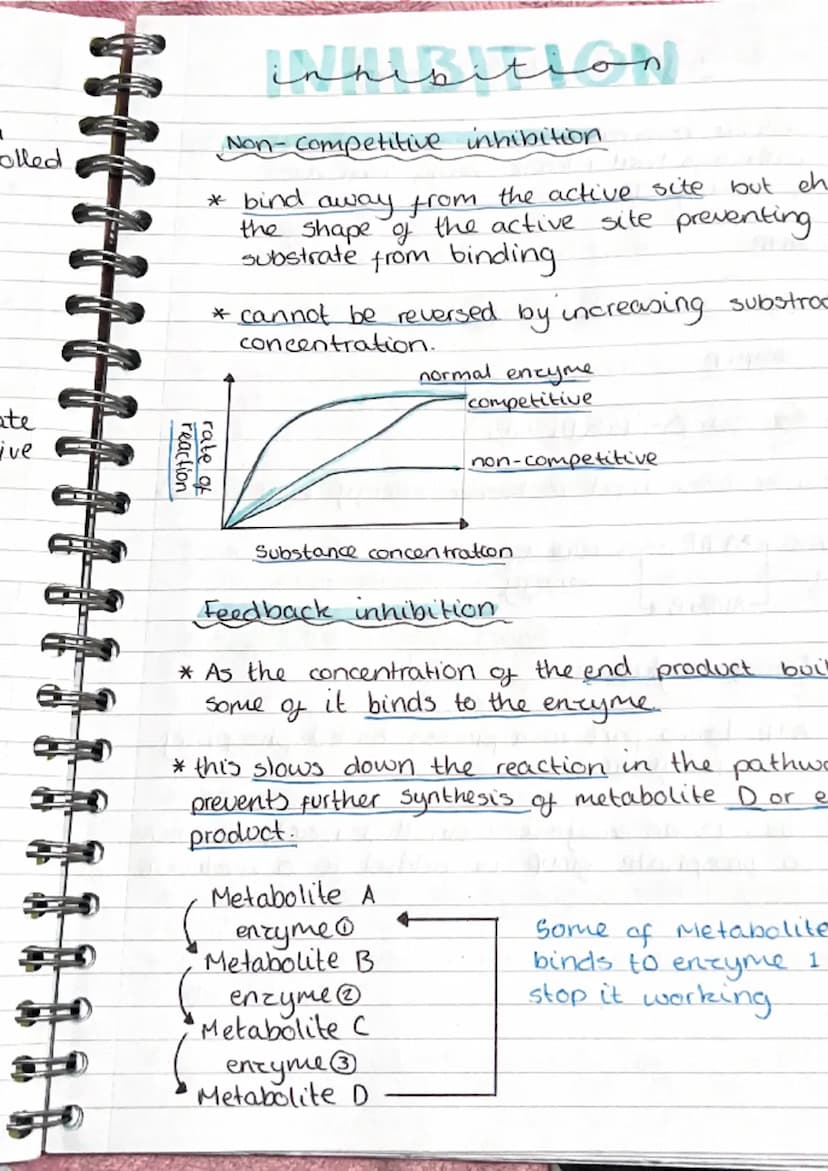 inhibition
INHIBITION
Non-competitive inhibition
olled
* bind away from the active site but ch
the shape of the active site preventing
substrate from binding
* cannot be reversed by increasing substra
concentration.
normal enzyme
competitive
non-competitive
rate of
reaction
Substance concentration
ate
ive
Feedback inhibition
* As the concentration of the end product buil
some of it binds to the enzyme
* this slows down the reaction in the pathwa
prevents further synthesis of metabolite D or e
product.
Metabolite A
enzyme ①
Metabolite B
enzyme ②
Metabolite C
enzyme ③
Metabolite D
Some of Metabolite
binds to enzyme 1
stop it working